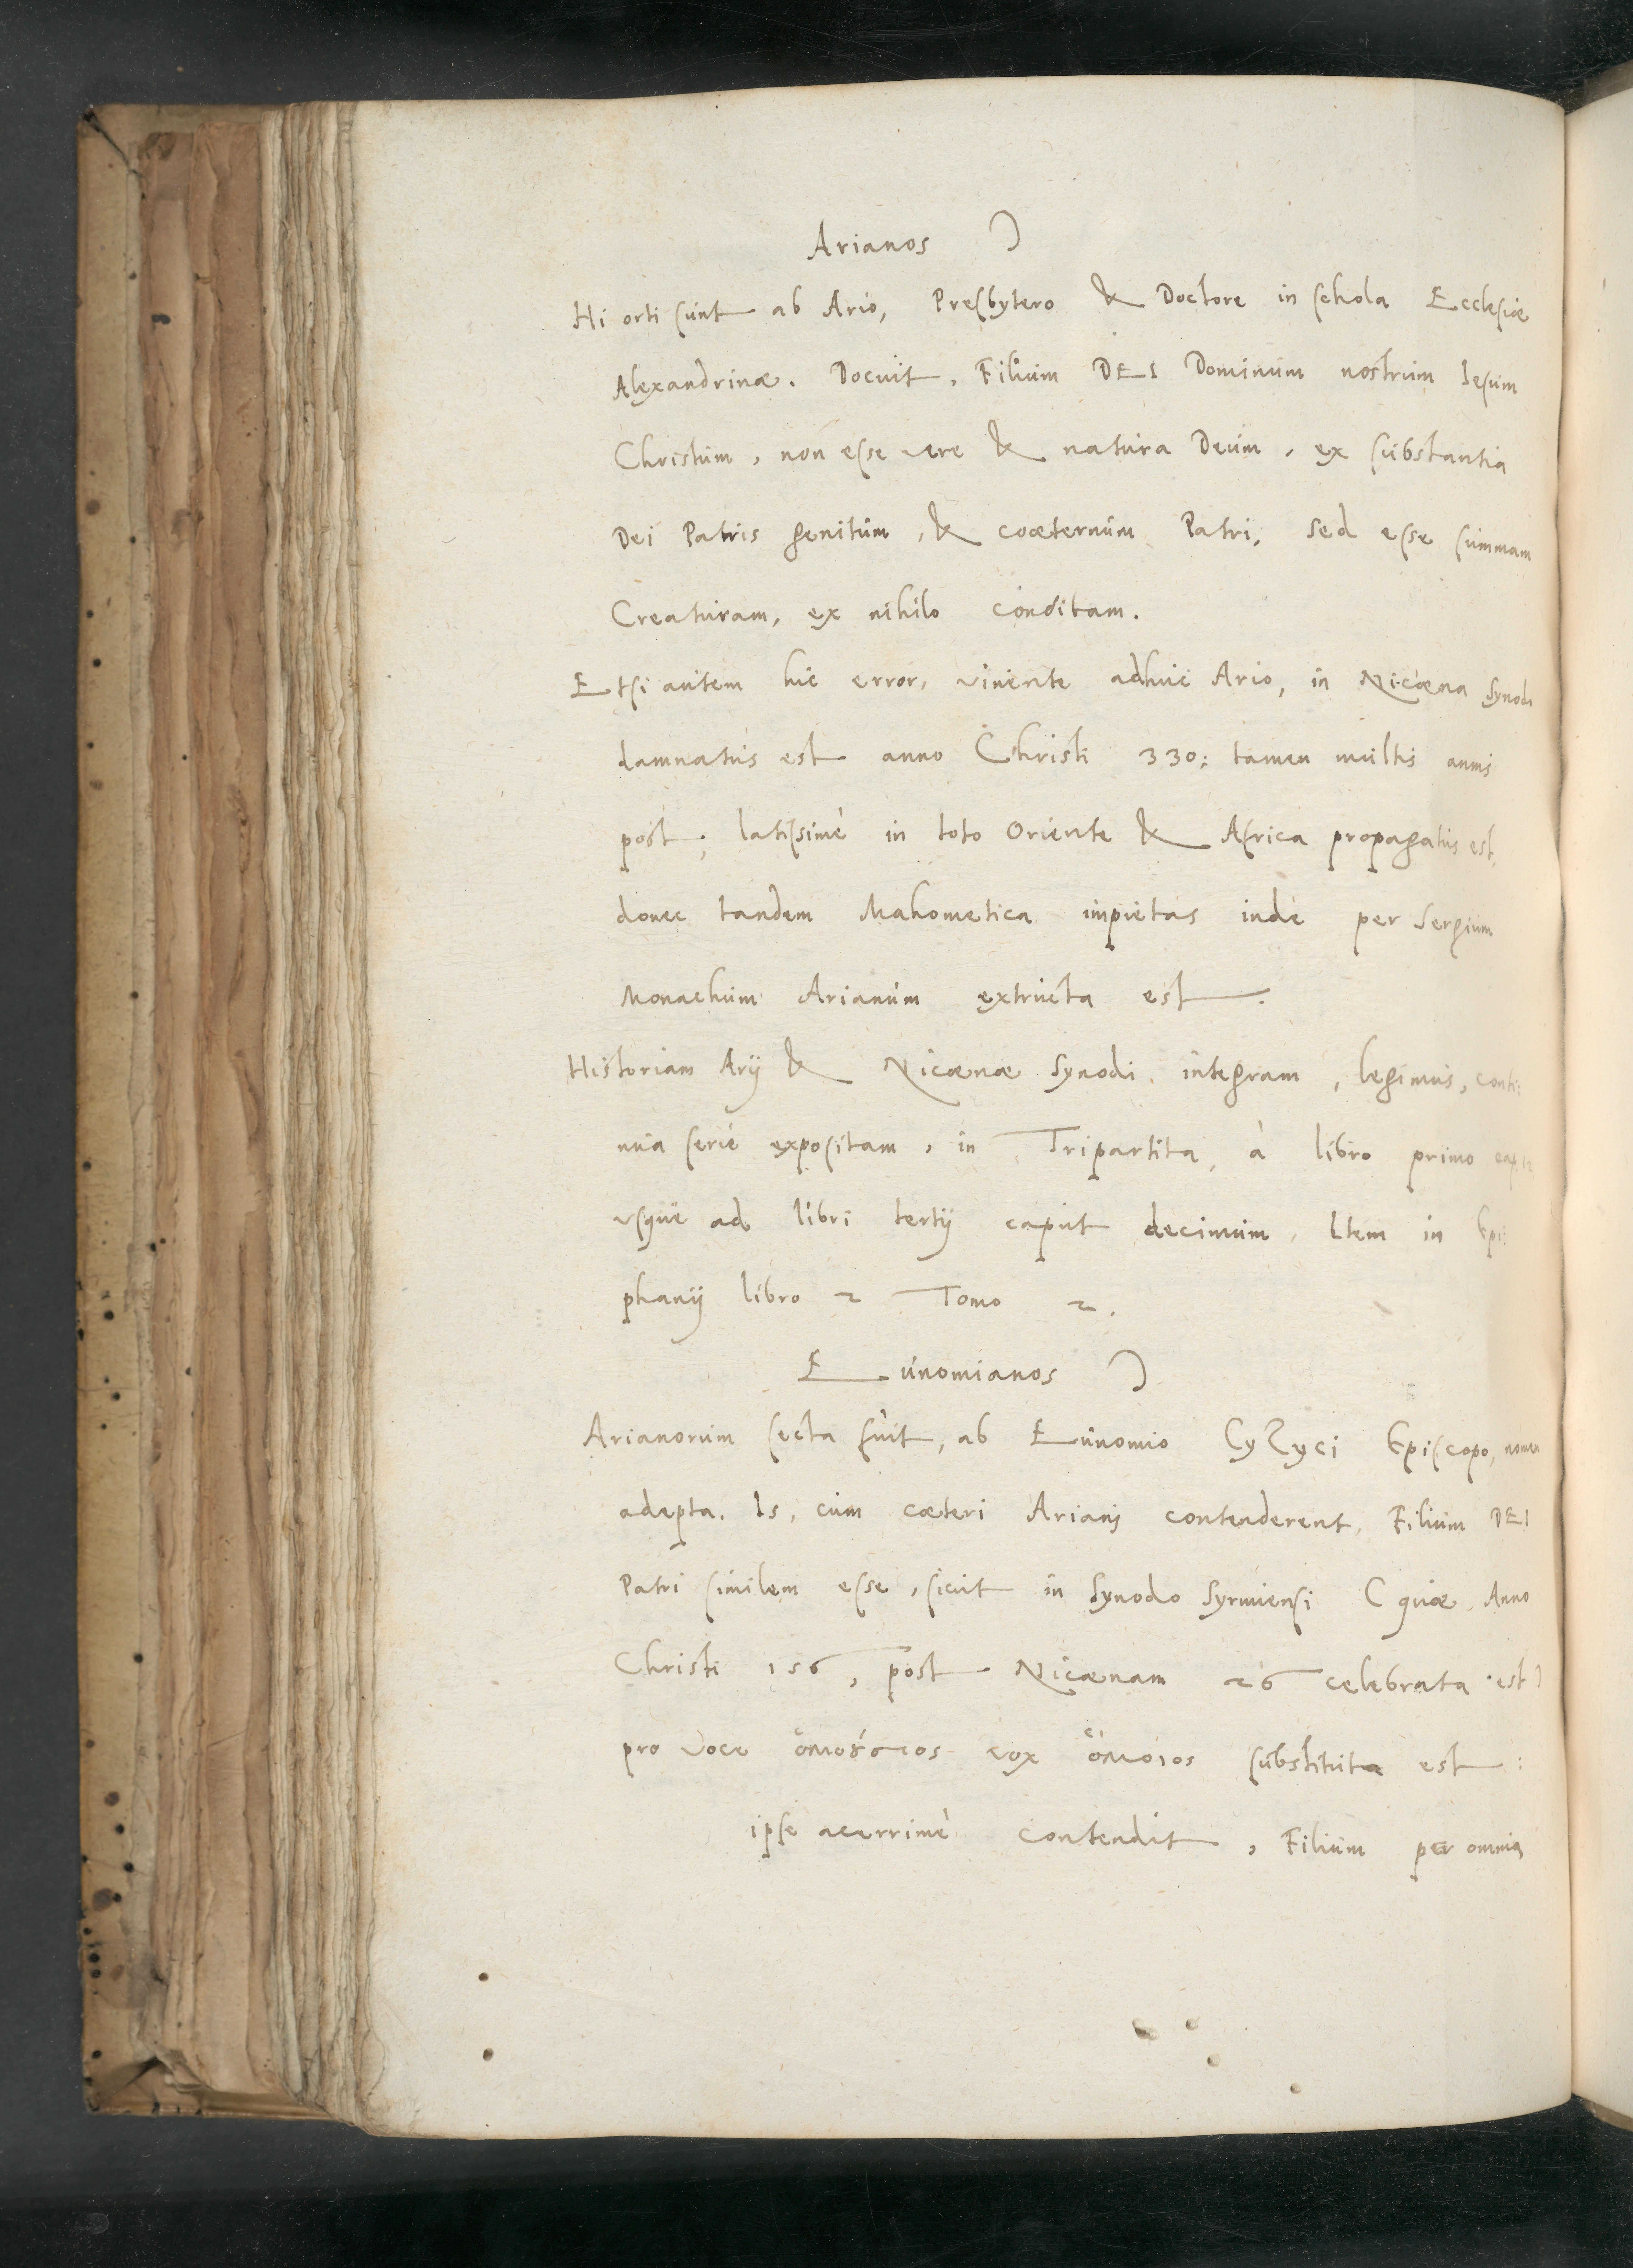 Arianos )
Hi orti sunt ab Ario, Presbytero & Doctore in schola Ecclesiæ
Alexandrinæ. Docuit, Filium DEI Dominum nostrum Iesum
Christum, non esse vere & natura Deum, ex substantia
Dei Patris genitum, & coæternum Patri, sed esse summam
Creaturam, ex nihilo conditam.
Etsi autem hic error, vivente adhuc Ario, in Nicæna Synodo
damnatus est anno Christi 330: tamen multis annis
post, latissimè in toto Oriente & Africa propagatus est,
donec tandem Mahometica impietas inde per Sergium
Monachum Arianum extructa est.
Historiam Arij & Nicænæ Synodi integram, legimus, conti:
nua serie expositam, in Tripartita, à libro primo
usque ad libri tertij caput decimum. Item in Epi:
phanij libro 2 Tomo 2.
Eunomianos )
Arianorum secta fuit, ab Eunomio Cyzyci Episcopo, nomen
adepta. Is, cum cæteri Ariani contenderent, Filium DEI
Patri similem esse, sicut in Synodo Syrmiensi ( quæ Anno
Christi 156, post Nicænam 26 celebrata est )
pro voce ὁμοȣ́σιος vox ὁμόιος substituta est:
ipse acerrimè contendit, Filium per omnia